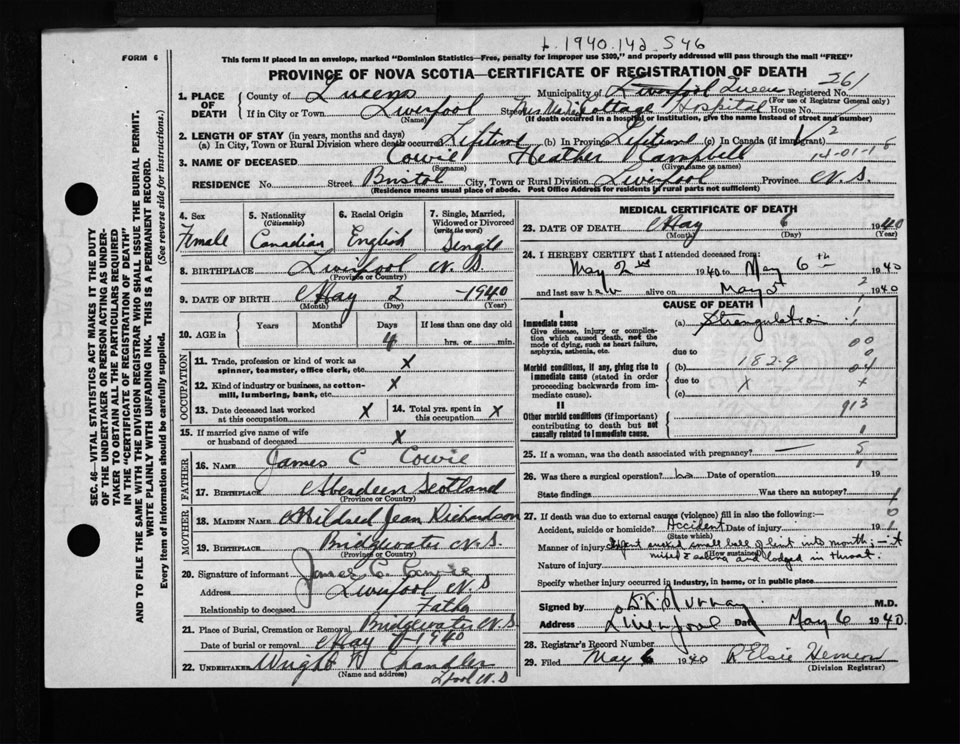 b. 1940. 142 S46
FORM 6
This form if placed in an envelope, marked "Dominion Statistics—Free, penalty for improper use $300," and properly addressed will pass through the mail "FREE"
PROVINCE OF NOVA SCOTIA—CERTIFICATE OF REGISTRATION OF DEATH
261
SEC. 46—VITAL STATISTICS ACT MAKES IT THE DUTY
OF THE UNDERTAKER OR PERSON ACTING AS UNDER-
TAKER TO OBTAIN ALL THE PARTICULARS REQUIRED
IN THE "CERTIFICATE OF REGISTRATION OF DEATH"
AND TO FILE THE SAME WITH THE DIVISION REGISTRAR WHO SHALL ISSUE THE BURIAL PERMIT.
WRITE PLAINLY WITH UNFADING INK. THIS IS A PERMANENT RECORD.
Every item of information should be carefully supplied. (See reverse side for instructions.)
1. PLACE OF DEATH
County of Queens Municipality of Liverpool Queens Registered No.
(For use of Registrar General only)
If in City or Town Liverpool Street Cottage Hospital House No.
(Name) (If death occurred in a hospital or institution, give the name instead of street and number)
2. LENGTH OF STAY (in years, months and days)
(a) In City, Town or Rural Division where death occurred Lifetime (b) In Province Lifetime (c) In Canada (if immigrant)
14-01-18
3. NAME OF DECEASED Cowie Heather Campbell
(Surname) (Given name or names)
RESIDENCE No. Street Bristol City, Town or Rural Division Liverpool Province N.S.
(Residence means usual place of abode. Post Office Address for residents in rural parts not sufficient)
4. Sex
Female
5. Nationality
(Citizenship)
Canadian
6. Racial Origin
English
7. Single, Married,
Widowed or Divorced
(write the word)
Single
8. BIRTHPLACE Liverpool N.S.
(Province or Country)
9. DATE OF BIRTH May 2 -1940
(Month) (Day) (Year)
10. AGE in Years Months Days If less than one day old
4 hrs. or min.
OCCUPATION
11. Trade, profession or kind of work as
spinner, teamster, office clerk, etc. X
12. Kind of industry or business, as cotton-
mill, lumbering, bank, etc. X
13. Date deceased last worked
at this occupation X
14. Total yrs. spent in
this occupation X
15. If married give name of wife
or husband of deceased X
FATHER
16. NAME James C Cowie
17. BIRTHPLACE Aberdeen Scotland
(Province or Country)
MOTHER
18. MAIDEN NAME Mildred Jean Richardson
19. BIRTHPLACE Bridgewater N.S.
(Province or Country)
20. Signature of informant James C. Cowie
Address Liverpool N.S
Relationship to deceased Father
21. Place of Burial, Cremation or Removal Bridgewater N.S
Date of burial or removal May 1940
22. UNDERTAKER Wright W Chandler
(Name and address) Lpool N.S
MEDICAL CERTIFICATE OF DEATH
23. DATE OF DEATH May 6 1940
(Month) (Day) (Year)
24. I HEREBY CERTIFY that I attended deceased from:
May 2nd 1940 to May 6th 1940
and last saw her alive on May 5 1940
CAUSE OF DEATH
I
Immediate cause (a) Strangulation
Give disease, injury or complica-
tion which caused death, not the
mode of dying, such as heart failure,
asphyxia, asthenia, etc.
due to
Morbid conditions, if any, giving rise to
immediate cause (stated in order
proceeding backwards from im-
mediate cause).
(b) 182.9
due to X
(c)
II
Other morbid conditions (if important)
contributing to death but not
causally related to immediate cause.
913
25. If a woman, was the death associated with pregnancy?
26. Was there a surgical operation? No Date of operation 19
State findings Was there an autopsy?
27. If death was due to external causes (violence) fill in also the following:—
Accident, suicide or homicide? Accident Date of injury 19
(State which)
Manner of injury Infant sucked small ball of lint into mouth;—it
(How sustained)
mixed and lodged in throat.
Nature of injury
Specify whether injury occurred in industry, in home, or in public place
Signed by M.D.
Address Liverpool Date May 6 1940.
28. Registrar's Record Number
29. Filed May 6 1940 R Elsie
(Division Registrar)